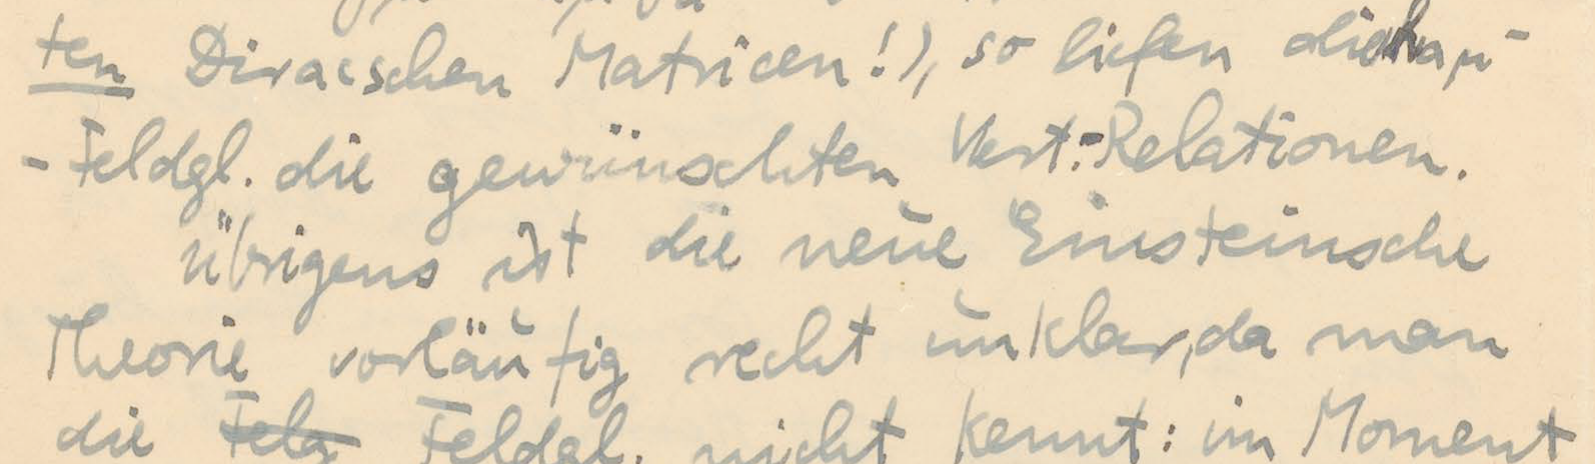 ten Diracschen Matricen!), so liefern die
-Feldgl. die gewünschten Vert.-Relationen.
Übrigens ist die neue Einsteinsche
Theorie vorläufig recht unklar, da man
die Feldgl. nicht kennt: im Moment